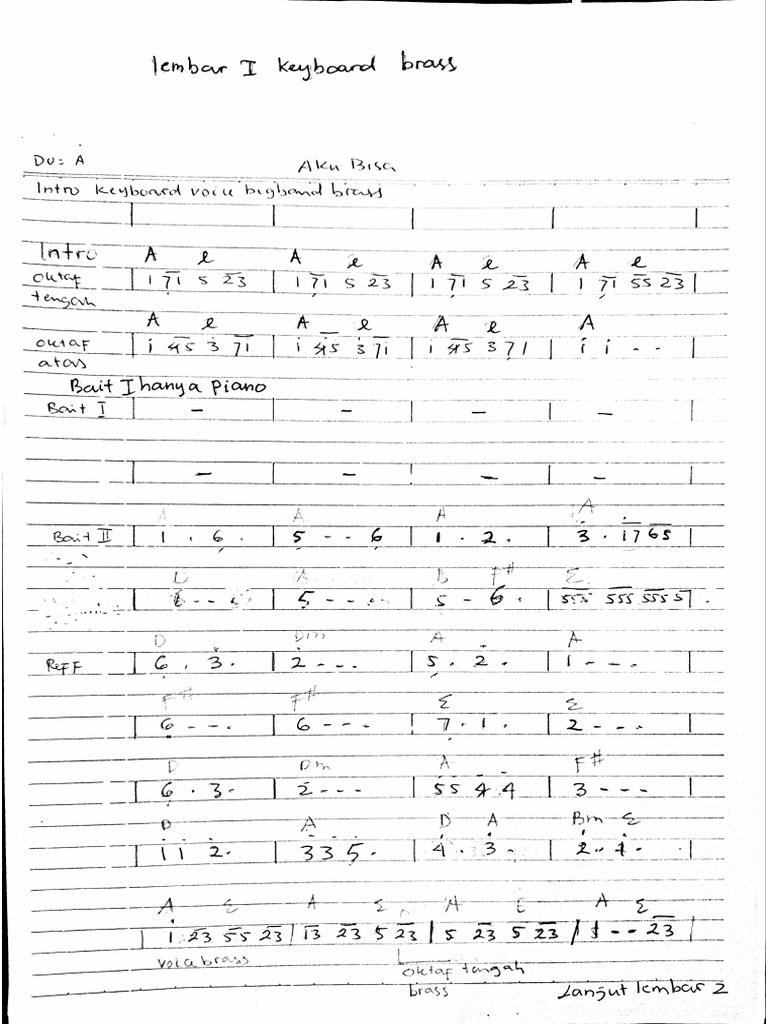 lembar I keyboard brass
Do = A
Aku Bisa
Intro keyboard voice bigband brass
Intro A e A e A e A e
oktaf tengah | 1 71 5 23 | 1 71 5 23 | 1 71 5 23 | 1 71 55 23 |
A e A e A e A
oktaf atas | i 45 3 71 | i 45 3 71 | i 45 3 71 | i i - - |
Bait I hanya piano
Bait I | - | - | - | - |
| - | - | - | - |
A A A A
Bait II | 1 . 6 . | 5 - - 6 | 1 . 2 . | 3 . 1765 |
D A B F# E
| 6 - - | 5 - - . | 5 - 6 . | 555 555 5555 | .
D Dm A A
Reff | 6 . 3 . | 2 - - - | 5 . 2 . | 1 - - . |
F# F# E E
| 6 - - . | 6 - - - | 7 . 1 . | 2 - - . |
D Dm A F#
| 6 . 3 . | 2 - - - | 55 44 | 3 - - - |
D A D A Bm E
| i i 2 . | 3 3 5 . | 4 . 3 . | 2 . 1 . |
A E A E A E A E
| 1 23 55 23 | 13 23 5 23 | 5 23 5 23 | 1 - - 23 |
voice brass
oktaf tengah
brass
Lanjut lembar 2